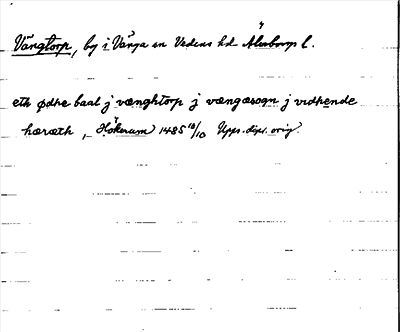 Vängtorp, by i Vänga sn Vedens hd Älvsborgs l.
eth ødhe baal j vænghtorp j vængæsogn j vidhende
hæræth, Hökerum 1485 10/10 Upps. dipl. orig.